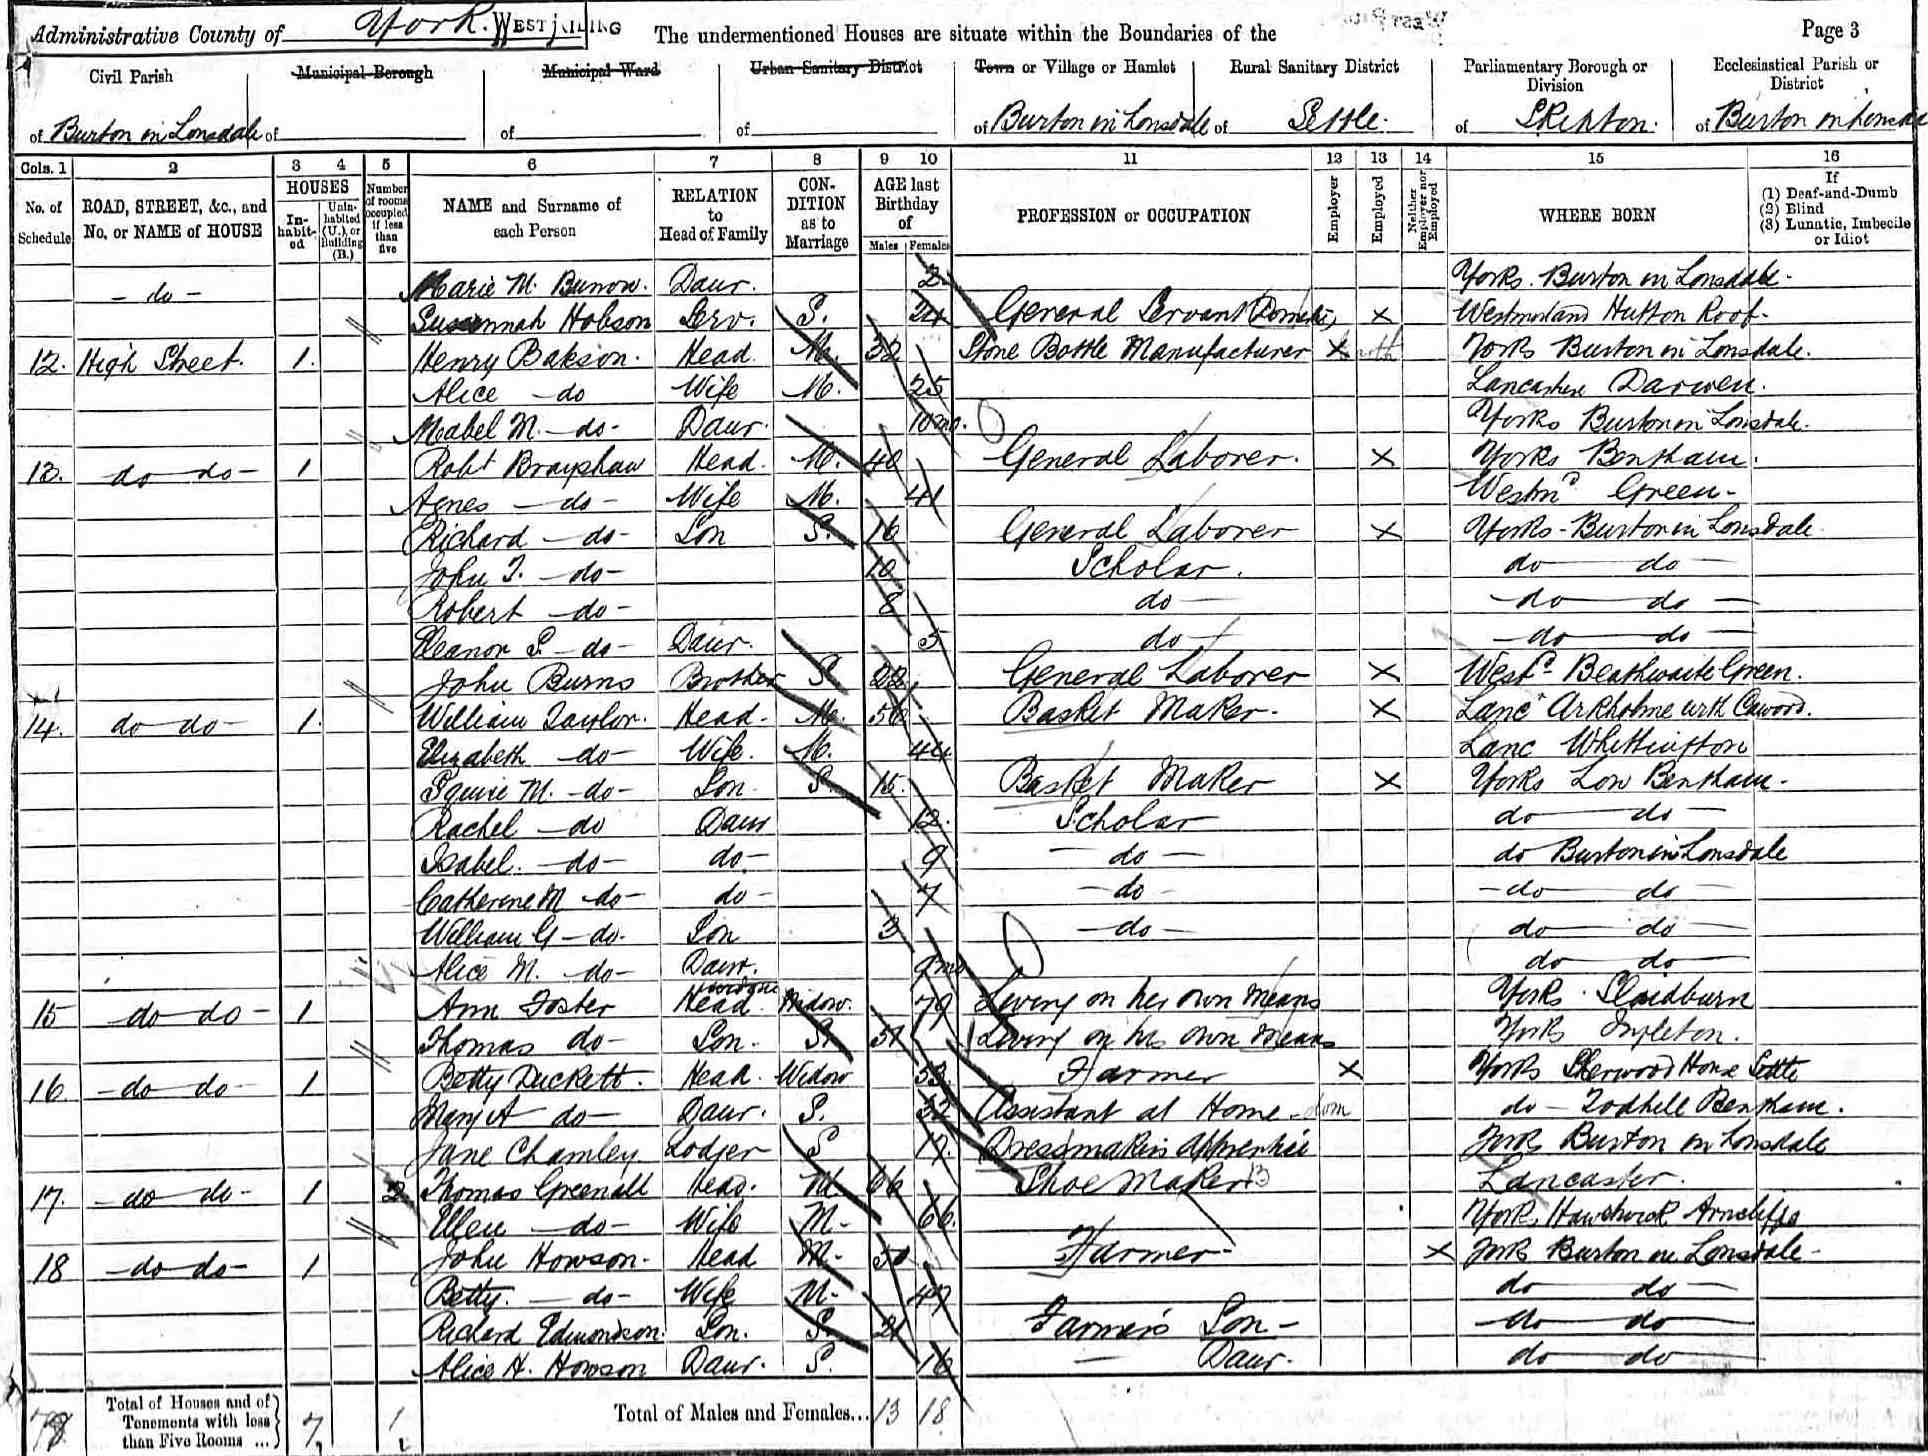 Administrative County of York. WEST RIDING The undermentioned Houses are situate within the Boundaries of the Page 3
Civil Parish Municipal Borough Municipal Ward Urban Sanitary District Town or Village or Hamlet Rural Sanitary District Parliamentary Borough or Division Ecclesiastical Parish or District
of Burton in Lonsdale of of of of Burton in Lonsdale of Settle. of Skipton. of Burton in Lonsdale
Cols. 1 2 3 4 5 6 7 8 9 10 11 12 13 14 15 16
No. of Schedule ROAD, STREET, &c., and No. or NAME of HOUSE HOUSES Inhabited Uninhabited (U.), or Building (B.) Number of rooms occupied if less than five NAME and Surname of each Person RELATION to Head of Family CONDITION as to Marriage AGE last Birthday of Males Females PROFESSION or OCCUPATION Employer Employed Neither Employer nor Employed WHERE BORN If (1) Deaf-and-Dumb (2) Blind (3) Lunatic, Imbecile or Idiot
- do - Marie M. Burrow. Daur. 2 Yorks. Burton in Lonsdale.
Susannah Hobson Serv. S. 24 General Servant (Domestic) X Westmorland Hutton Roof.
12. High Street. 1. Henry Bakson. Head. M. 32 Stone Bottle Manufacturer X Yorks Burton in Lonsdale.
Alice - do Wife M. 25 Lancashire Darwen.
Mabel M. - do - Daur. 10 mo. Yorks Burton in Lonsdale.
13. do do - 1 Robt Brayshaw Head. M. 40 General Laborer. X Yorks Bentham.
Agnes - do - Wife M. 41 Westmd Green -
Richard - do - Son S. 16 General Laborer X Yorks - Burton in Lonsdale.
John T. - do - 10 Scholar. do do
Robert - do - 8 do - - do do -
Eleanor S - do - Daur. 5 do - - do do -
John Burns Brother S 22 General Laborer X Westd Beathwaite Green.
14. do do - 1. William Taylor. Head. M. 50 Basket Maker. X Lanc Arkholme with Cawood.
Elizabeth - do - Wife. M. 44 Lanc Whittington
Squire M. - do - Son. S. 15. Basket Maker X Yorks Low Bentham.
Rachel - do Daur 12. Scholar do do -
Isabel. - do - do - 9 - do - do Burton in Lonsdale
Catherine M - do - do - 7 - do - - do do -
William G - do. Son 3 - do - do do -
Alice M. do - Daur. 9 mo do do
15 do do - 1 Ann Foster Head. Widow. 79 Living on her own Means Yorks. Slaidburn
Thomas do - Son. S. 51 Living on his own Means Yorks Ingleton.
16 - do do - 1 Betty Duckett. Head. Widow 53 Farmer X Yorks Sherwood House Settle
Mary A do - Daur. S. 22 Assistant at Home - dom do - Todhill Bentham.
Jane Chamley Lodger S 17. Dressmakers apprentice York Burton in Lonsdale
17. - do do - 1 2 Thomas Greenall Head. M. 66 Shoe Maker Lancaster.
Ellen - do - Wife M. 66. York, Hawkswick Arncliffe
18 - do do - 1 John Howson. Head M. 50 Farmer X York Burton in Lonsdale -
Betty. - do - Wife M. 47 do do -
Richard Edmondson. Son. S. 21 Farmer's Son - - do do
Alice H. Howson Daur. S. 16 - Daur. do do
Total of Houses and of Tenements with less than Five Rooms ... 7 1 Total of Males and Females... 13 18